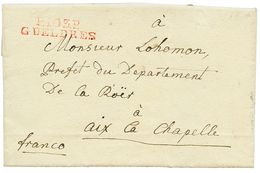 à
P.103.P.
GUELDRES
Monsieur Lohomon,
Prefet du Departement
De la Roër
à
aix la Chapelle
franco